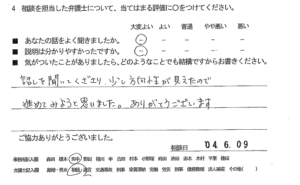 4 相談を担当した弁護士について、当てはまる評価に○をつけてください。
大変よい よい 普通 やや悪い 悪い
■ あなたの話をよく聞きましたか。
■ 説明は分かりやすかったですか。
■ 気がついたことがありましたら、どんなことでも結構ですからお書きください。
話しを聞いてくださり 少し方向性が見えたので
進めてみようと思いました。ありがとうございます
ご協力ありがとうございました。
相談日 04.6.09